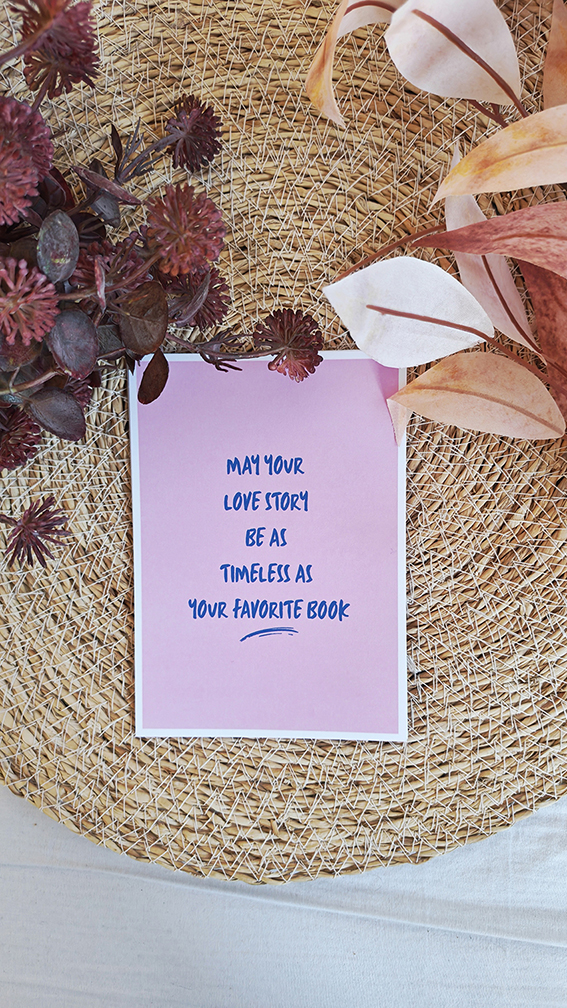 MAY YOUR
LOVE STORY
BE AS
TIMELESS AS
YOUR FAVORITE BOOK